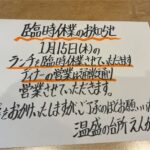 臨時休業のお知らせ
1月15日(木)の
ランチを臨時休業させていただきます
ディナーの営業は通常通り
営業させていただきます。
をおかけいたしますが、ご了承のほどお願いいた
温盛の台所えんが